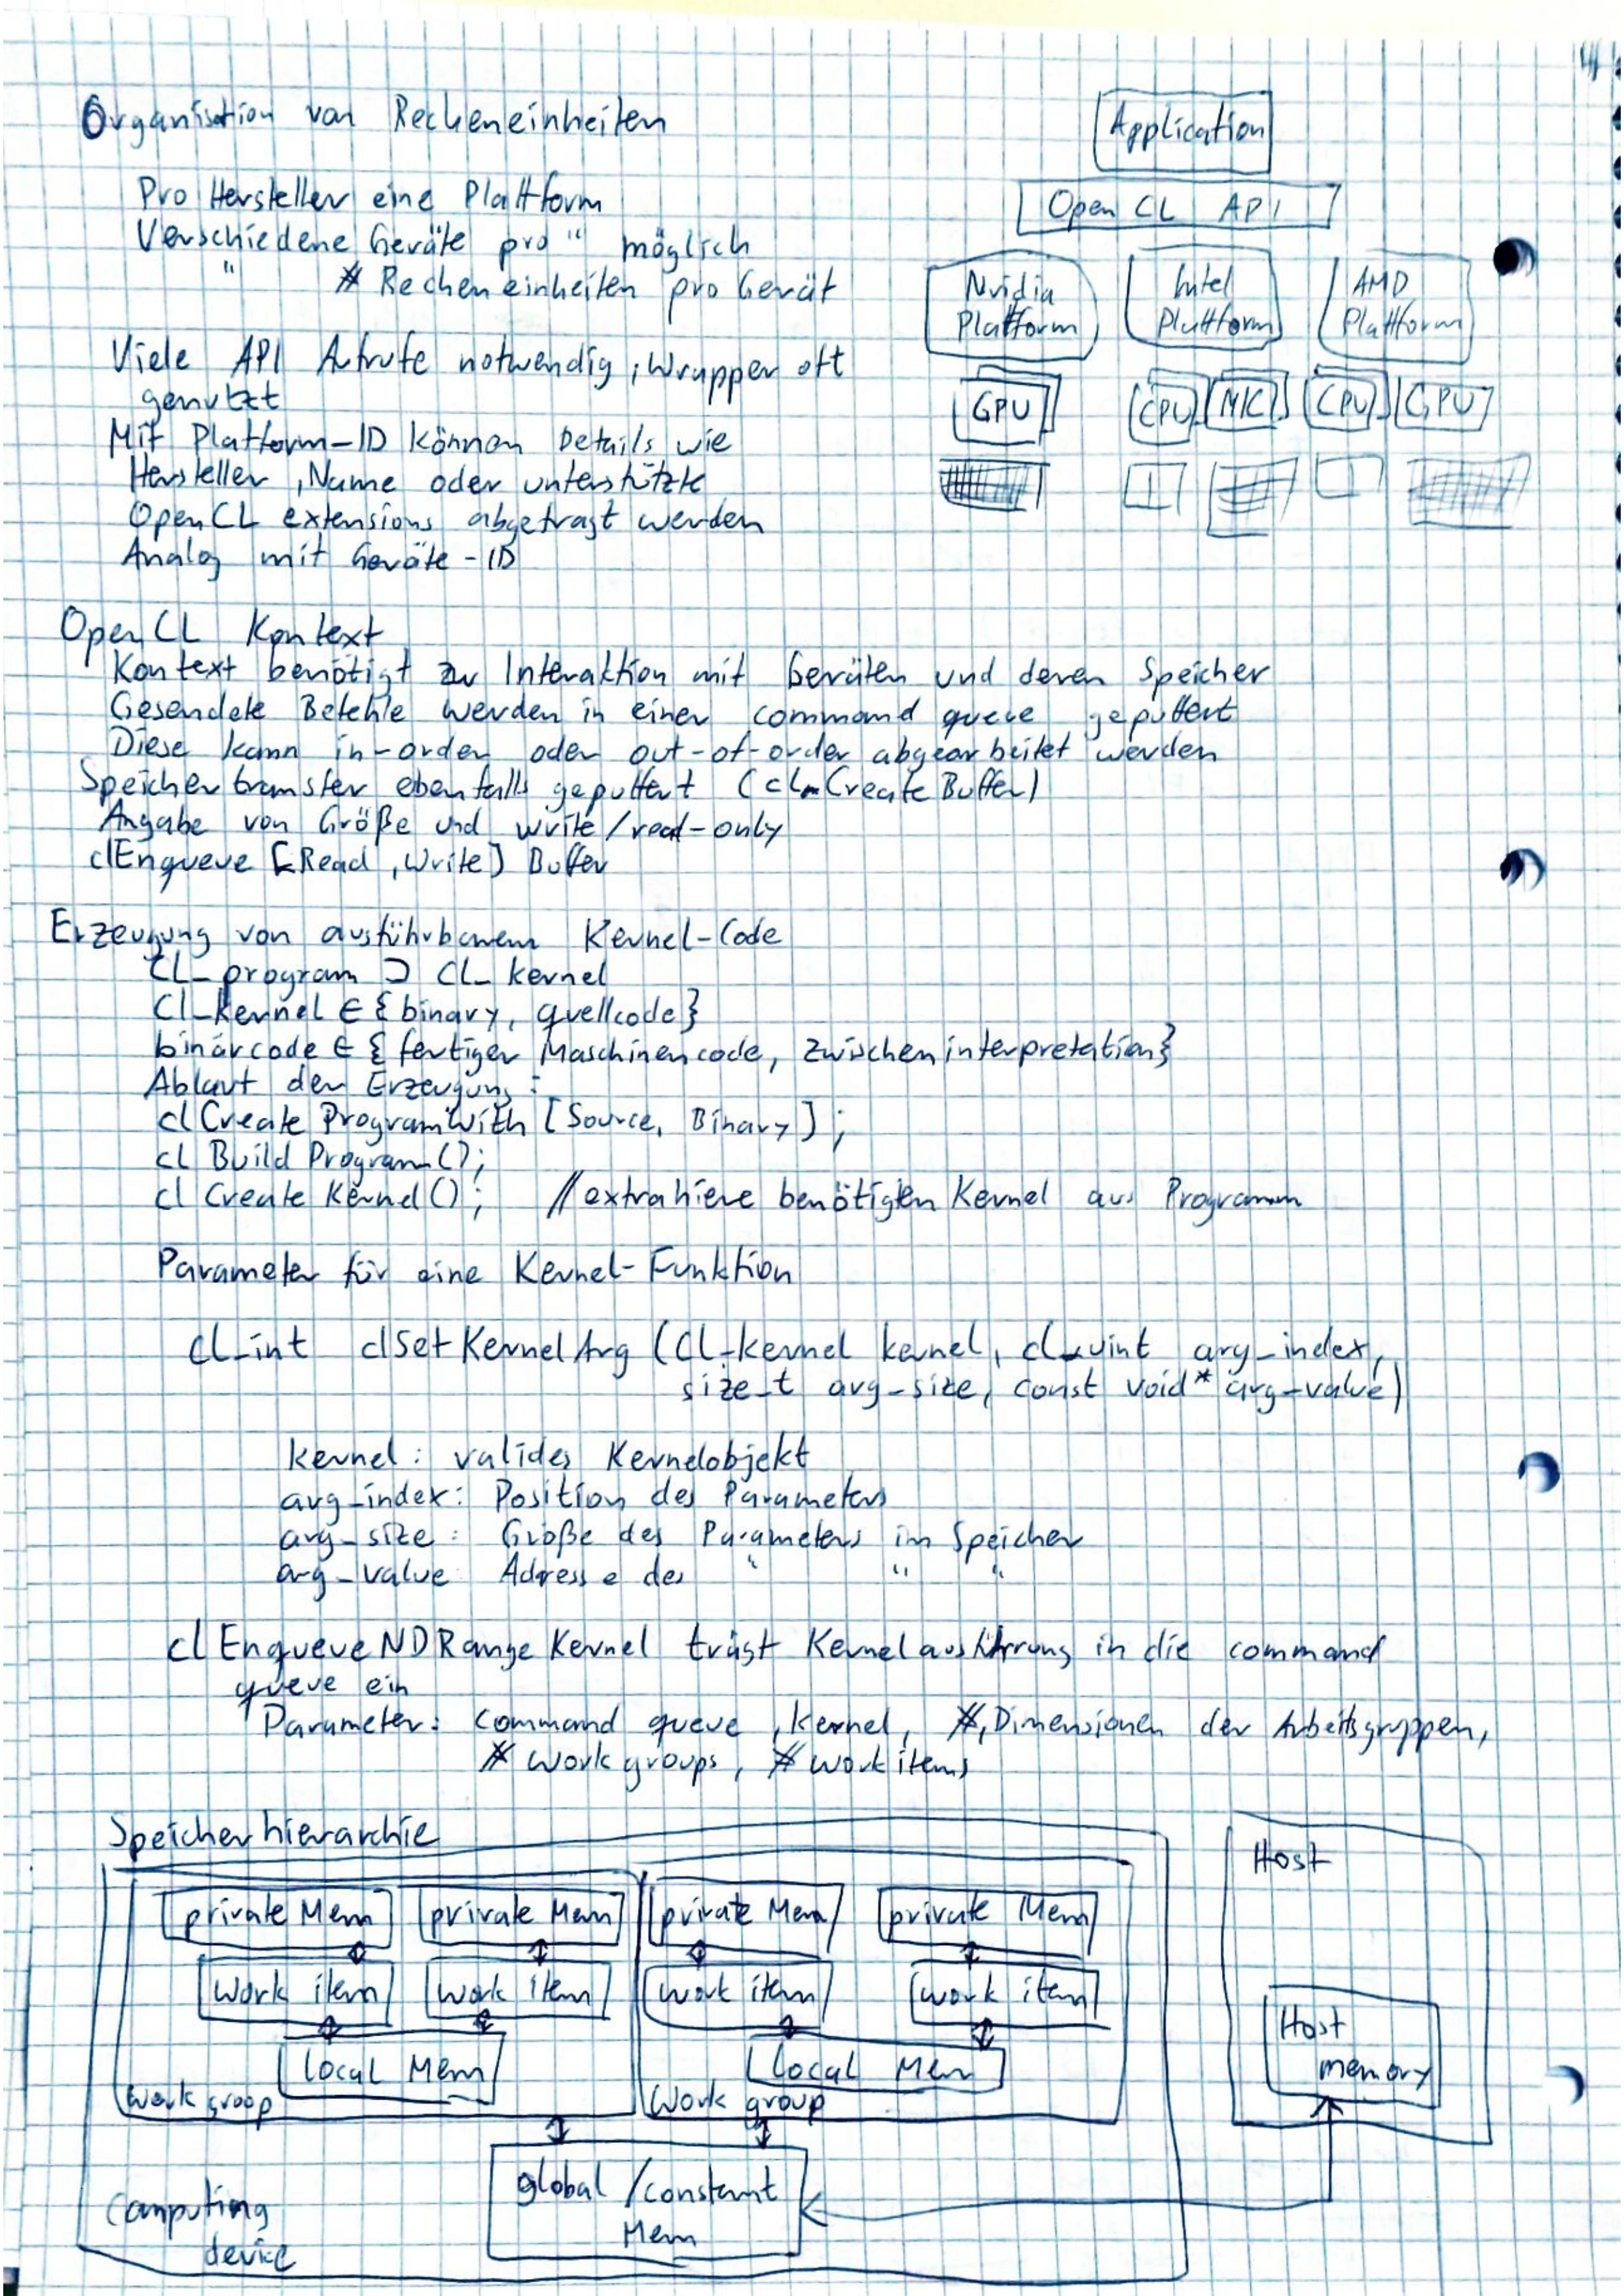 Organisation von Recheneinheiten
Pro Hersteller eine Plattform
Verschiedene Geräte pro " möglich
" # Recheneinheiten pro Gerät
Viele API Aufrufe notwendig, Wrapper oft
genutzt
Mit Platform-ID können Details wie
Hersteller, Name oder unterstützte
OpenCL extensions abgefragt werden
Analog mit Geräte-ID
Application
Open CL API
Nvidia
Platform
Intel
Plattform
AMD
Plattform
GPU
CPU
MIC
CPU
GPU
OpenCL Kontext
Kontext benötigt zur Interaktion mit Geräten und deren Speicher
Gesendete Befehle werden in einer command queue gepuffert
Diese kann in-order oder out-of-order abgearbeitet werden
Speichertransfer ebenfalls gepuffert (clCreateBuffer)
Angabe von Größe und write/read-only
clEnqueue [Read, Write] Buffer
Erzeugung von ausführbarem Kernel-Code
CL_program ⊃ CL_kernel
Cl_kernel ∈ {binary, quellcode}
binärcode ∈ {fertiger Maschinencode, Zwischeninterpretation}
Ablauf der Erzeugung:
clCreateProgramWith [Source, Binary];
clBuildProgram();
clCreateKernel(); //extrahiere benötigten Kernel aus Programm
Parameter für eine Kernel-Funktion
cl_int clSetKernelArg (CL_kernel kernel, cl_uint arg_index,
size_t arg_size, const void* arg_value)
kernel: valides Kernelobjekt
arg_index: Position des Parameters
arg_size: Größe des Parameters im Speicher
arg_value: Adresse des " " "
clEnqueueNDRangeKernel trägt Kernelausführung in die command
queue ein
Parameter: command queue, kernel, #, Dimensionen der Arbeitsgruppen,
# workgroups, # workitems
Speicherhierarchie
private Mem
private Mem
private Mem
private Mem
work item
work item
work item
work item
local Mem
local Mem
Work group
Work group
global / constant
Mem
Computing
device
Host
Host
memory